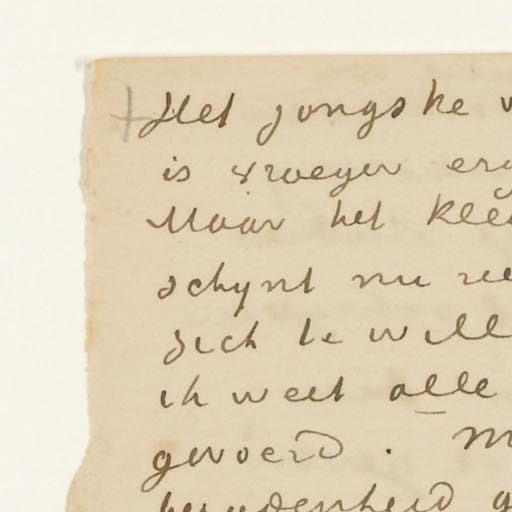 Het jongske v
is vroeger er
Maar het klee
schynt nu ree
zich te will
ik weet alle
gevoerd. M